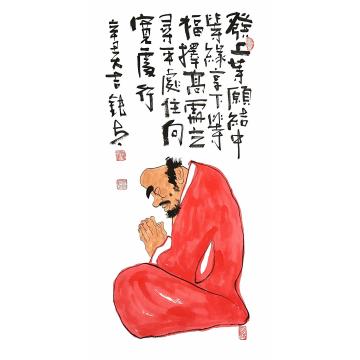 發上等願結中
等緣享下等
福擇高處立
尋平處住向
寬處行
辛丑大吉